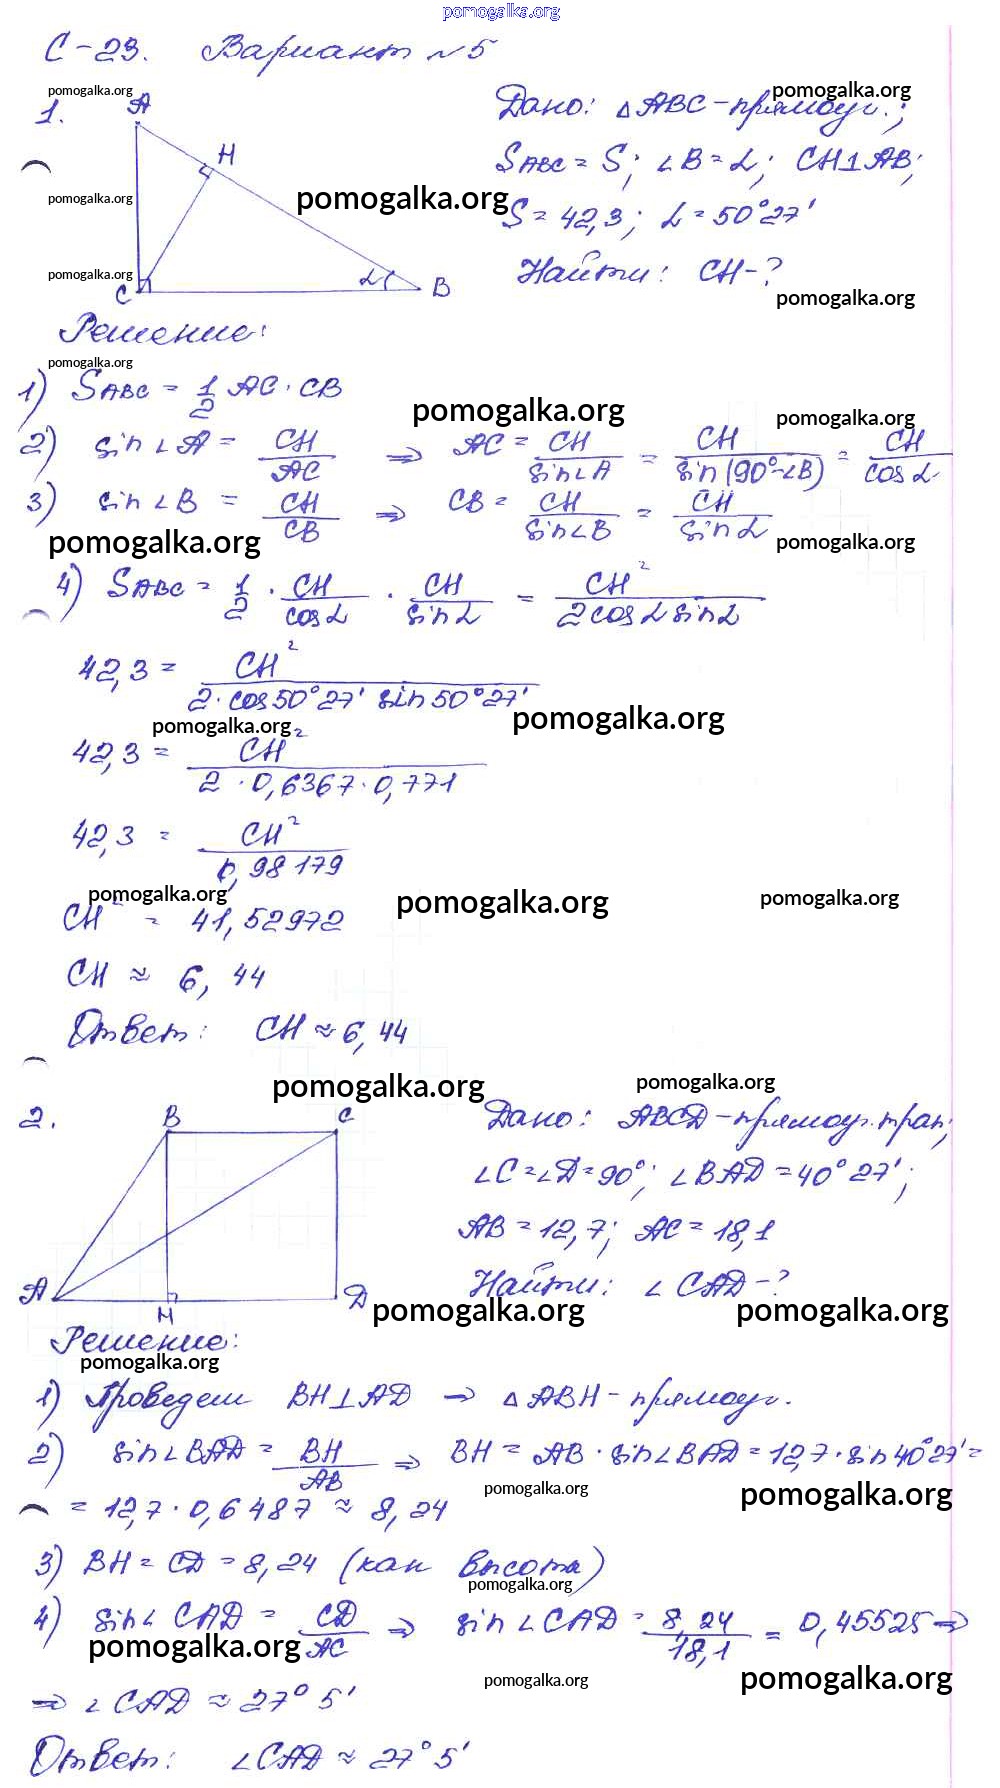 pomogalka.org
С-23. Вариант №5
pomogalka.org
pomogalka.org
1.
A
H
C
B
α
Дано: △ABC-прямоуг.;
S ABC = S; ∠B = α; CH⊥AB;
pomogalka.org
pomogalka.org
S = 42,3; α = 50°27'
Найти: CH-?
pomogalka.org
pomogalka.org
Решение:
pomogalka.org
1) S ABC = 1/2 AC · CB
pomogalka.org
pomogalka.org
2) sin∠A = CH/AC ⇒ AC = CH/sin∠A = CH/sin(90°-∠B) = CH/cosα
3) sin∠B = CH/CB ⇒ CB = CH/sin∠B = CH/sinα
pomogalka.org
pomogalka.org
4) S ABC = 1/2 · CH/cosα · CH/sinα = CH²/2cosα sinα
42,3 = CH²/2·cos50°27' sin50°27'
pomogalka.org
pomogalka.org
42,3 = CH²/2·0,6367·0,771
42,3 = CH²/0,98179
pomogalka.org
pomogalka.org
pomogalka.org
CH² = 41,52972
CH ≈ 6,44
Ответ: CH ≈ 6,44
pomogalka.org
pomogalka.org
2.
B
C
A
H
D
Дано: ABCD-прямоуг. трап;
∠C = ∠D = 90°; ∠BAD = 40°27';
AB = 12,7; AC = 18,1
Найти: ∠CAD-?
pomogalka.org
pomogalka.org
Решение:
pomogalka.org
1) Проведем BH⊥AD ⇒ △ABH-прямоуг.
2) sin∠BAD = BH/AB ⇒ BH = AB · sin∠BAD = 12,7 · sin40°27' =
pomogalka.org
pomogalka.org
= 12,7 · 0,6487 ≈ 8,24
3) BH = CD = 8,24 (как высота)
pomogalka.org
4) sin∠CAD = CD/AC ⇒ sin∠CAD = 8,24/18,1 = 0,45525 ⇒
pomogalka.org
pomogalka.org
pomogalka.org
⇒ ∠CAD ≈ 27°5'
Ответ: ∠CAD ≈ 27°5'